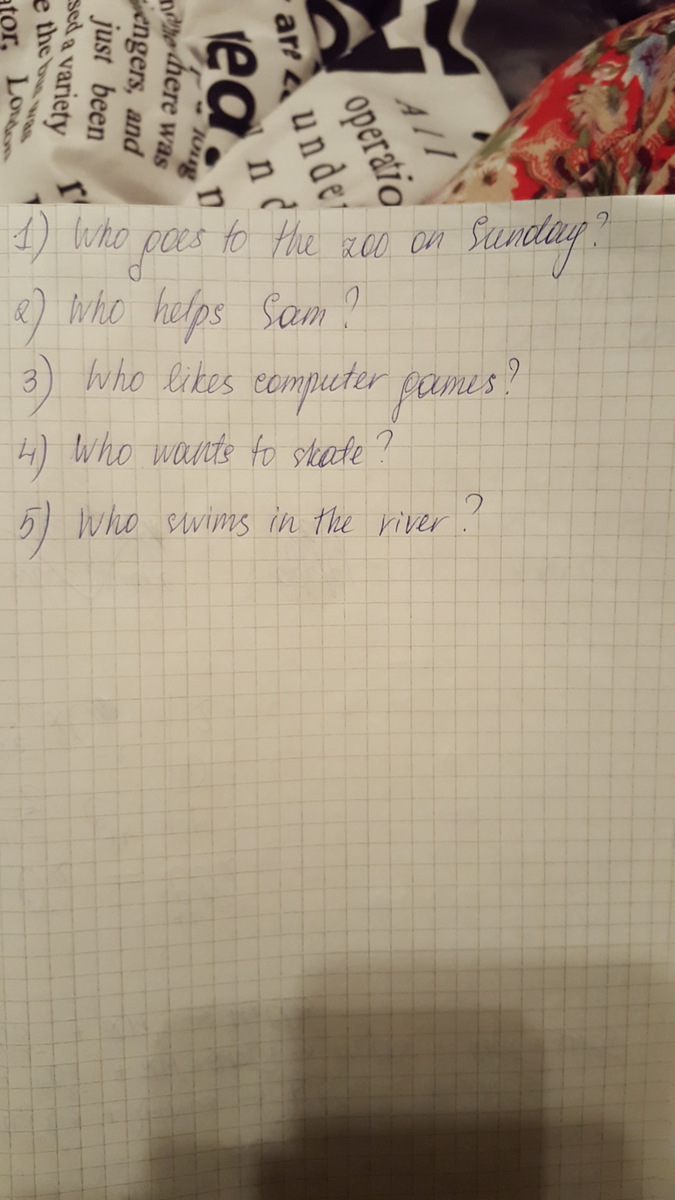 are
All
operatio
unde
nd
rea.
there was
engers, and
just been
sed a variety
e the bus was
ator, London
1) Who goes to the zoo on Sunday?
2) Who helps Sam?
3) Who likes computer games?
4) Who wants to skate?
5) Who swims in the river?